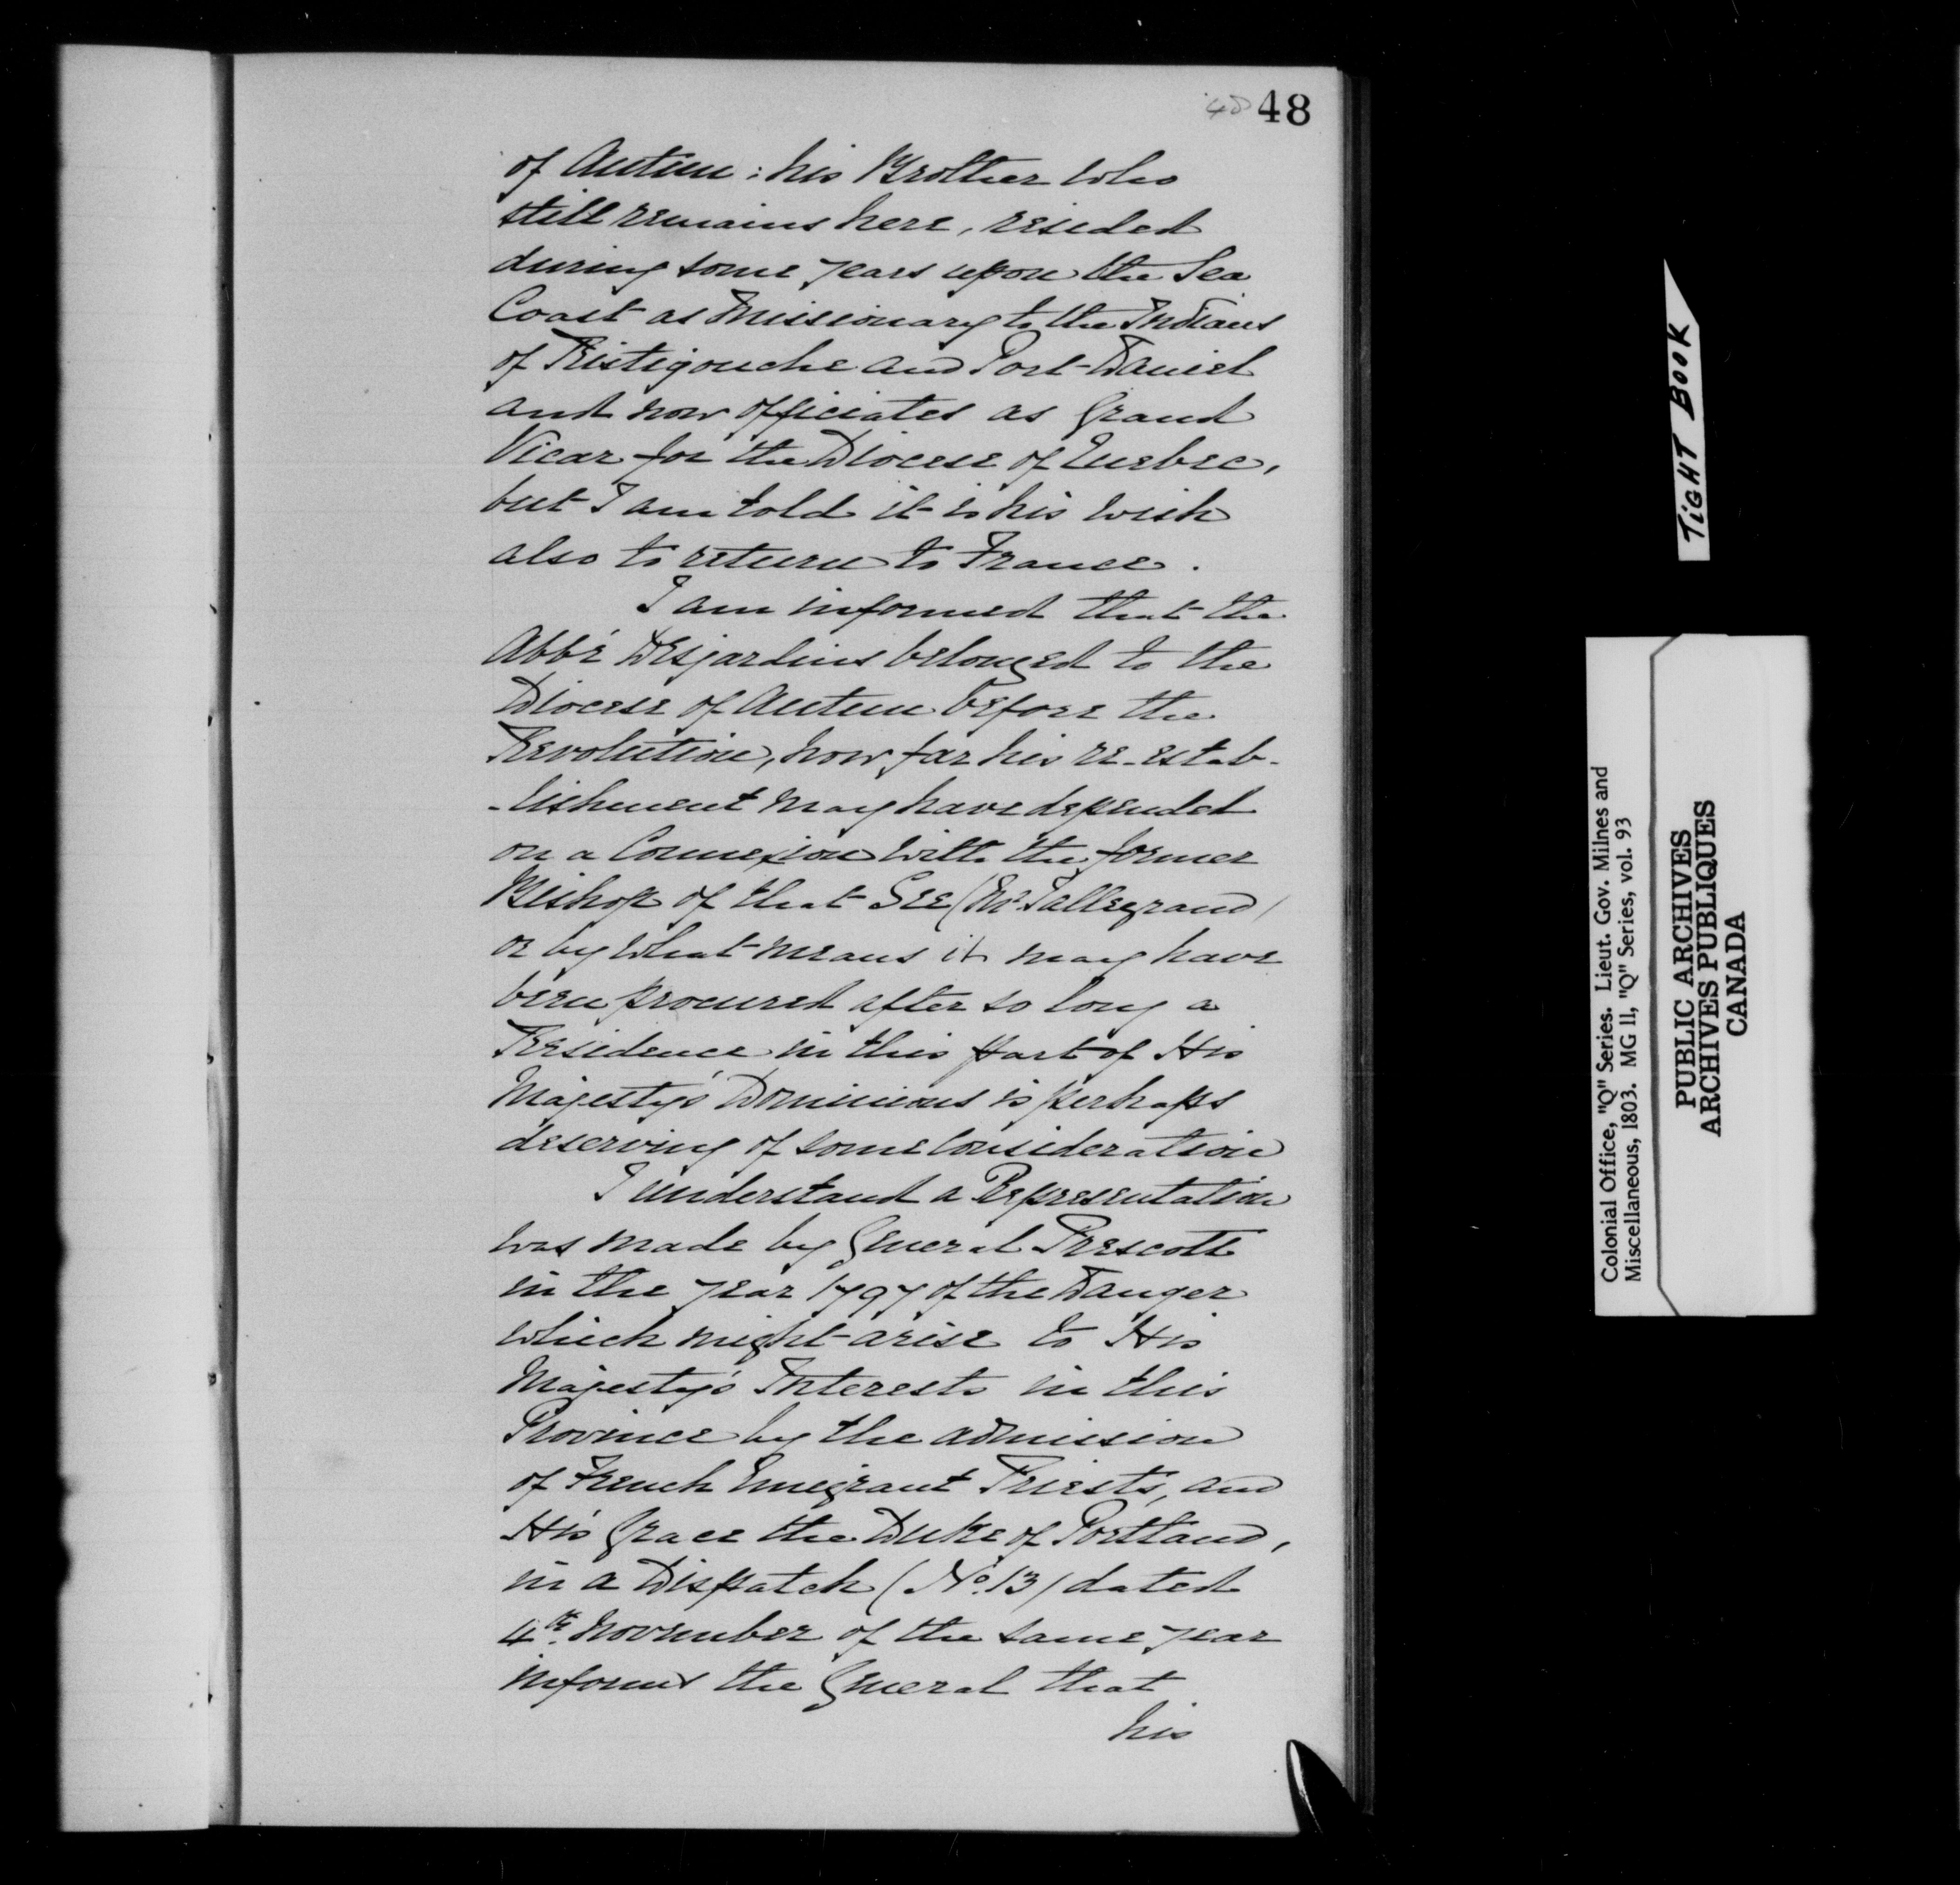 48 48
of Autun: his Brother who
still remains here, resided
during some years upon the Sea
Coast as Missionary to the Indians
of Ristigouche and Port-Daniel
and now officiates as Grand
Vicar for the Diocese of Quebec,
but I am told it is his wish
also to return to France.
I am informed that the
Abbé Desjardins belonged to the
Diocese of Autun before the
Revolution, how far his re-estab-
-lishment may have depended
on a Connexion with the former
Bishop of that See (Mr. Talleyrand)
or by what means it may have
been procured after so long a
Residence in this part of His
Majesty's Dominions is perhaps
deserving of some consideration
I understand a Representation
was made by General Prescott
in the year 1797 of the Danger
which might arise to His
Majesty's Interests in this
Province by the admission
of French Emigrant Priests, and
His Grace the Duke of Portland,
in a Dispatch (No. 13) dated
4th. November of the same year
informs the General that
his
TIGHT BOOK
Colonial Office, "Q" Series. Lieut. Gov. Milnes and
Miscellaneous, 1803. MG 11, "Q" Series, vol. 93
PUBLIC ARCHIVES
ARCHIVES PUBLIQUES
CANADA